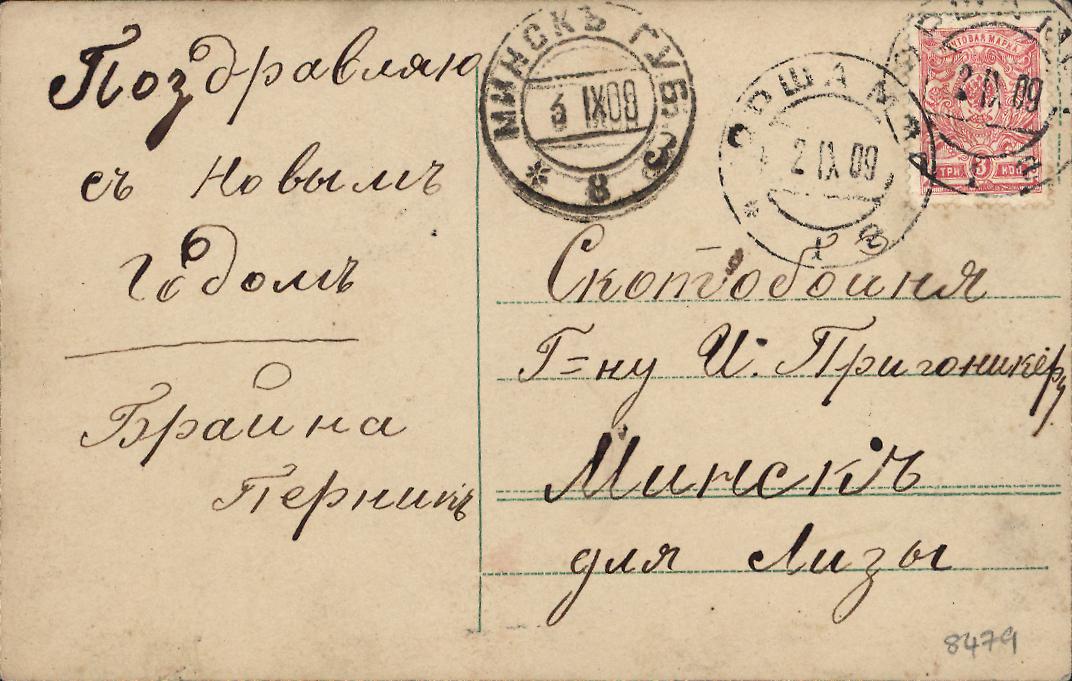 Поздравляю
съ Новымъ
Годомъ
Брайна
Перникъ
МИНСКЪ ГУБ.
3 IX 09
* 8
ОРША МОГ
2 IX 09
* 1
ПОЧТОВАЯ МАРКА
2 IX 09
ТРИ 3 КОП
Скотобойня
Г=ну И. Пригоникеру
Минскъ
для Лизы
8479